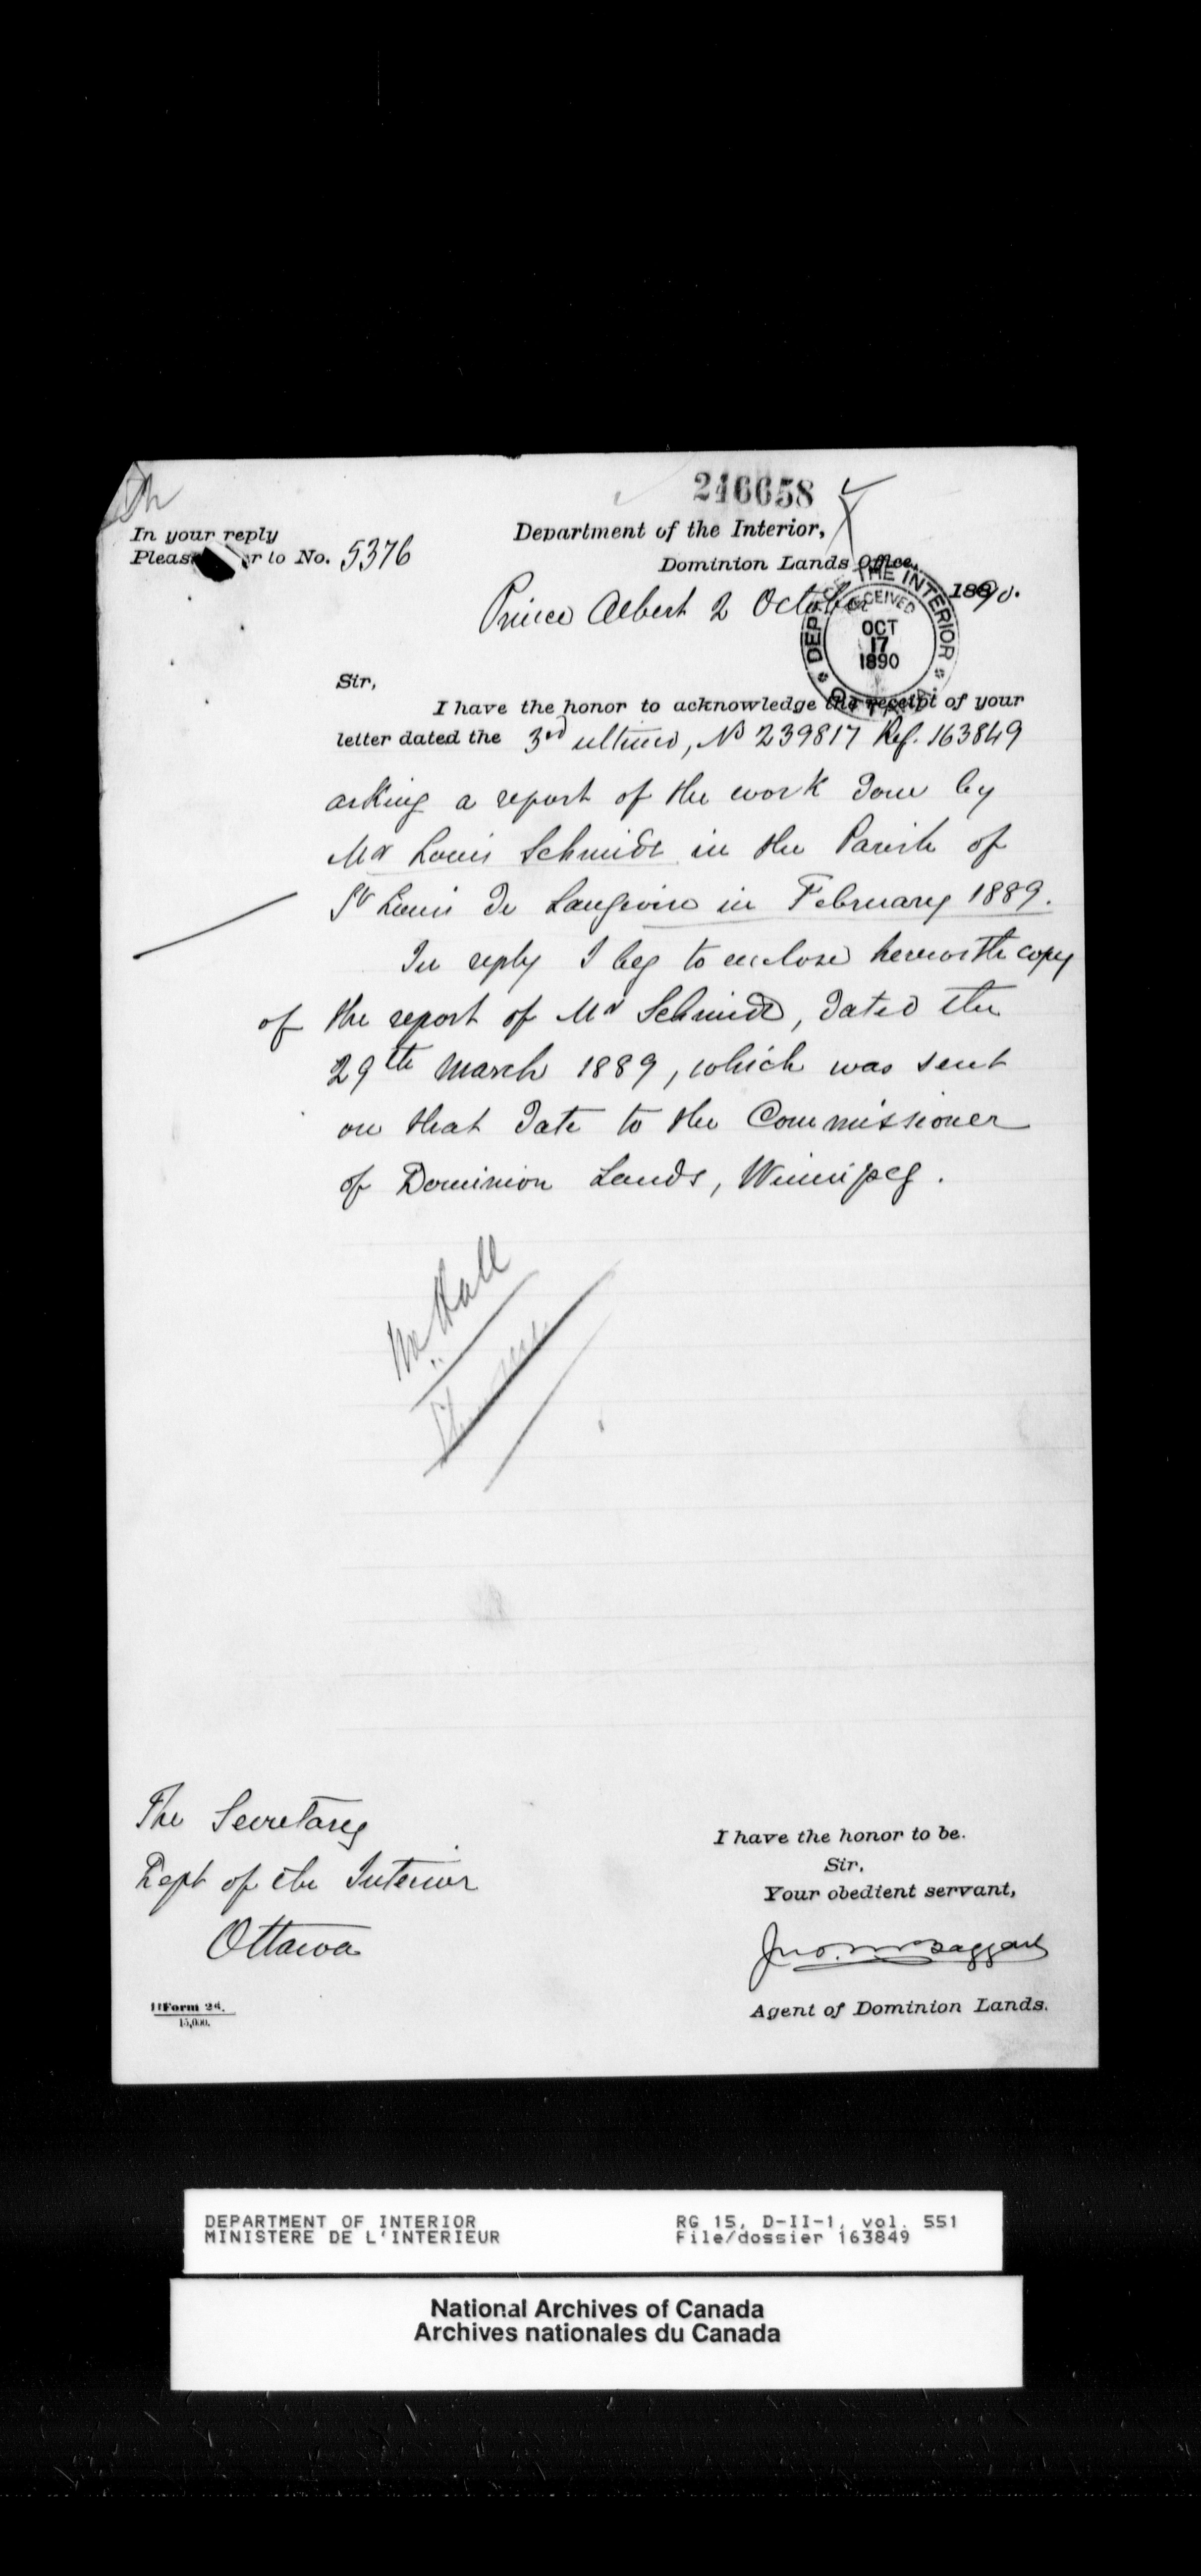 246658
In your reply
Please refer to No. 5376
Department of the Interior,
Dominion Lands Office,
Prince Albert 2 October 1890.
DEPT OF THE INTERIOR
RECEIVED
OCT
17
1890
OTTAWA
Sir,
I have the honor to acknowledge the receipt of your
letter dated the 3rd ultimo, No 239817 Ref. 163849
asking a report of the work done by
Mr Louis Schmidt in the Parish of
St Louis de Langevin in February 1889.
In reply I beg to enclose herewith copy
of the report of Mr Schmidt, dated the
29th March 1889, which was sent
on that date to the Commissioner
of Dominion Lands, Winnipeg.
Mr Hall
The Secretary
Dept of the Interior
Ottawa
I have the honor to be.
Sir,
Your obedient servant,
Jno.
Agent of Dominion Lands.
Form 2d.
15,000.
DEPARTMENT OF INTERIOR
MINISTERE DE L'INTERIEUR
RG 15, D-II-1, vol. 551
File/dossier 163849
National Archives of Canada
Archives nationales du Canada